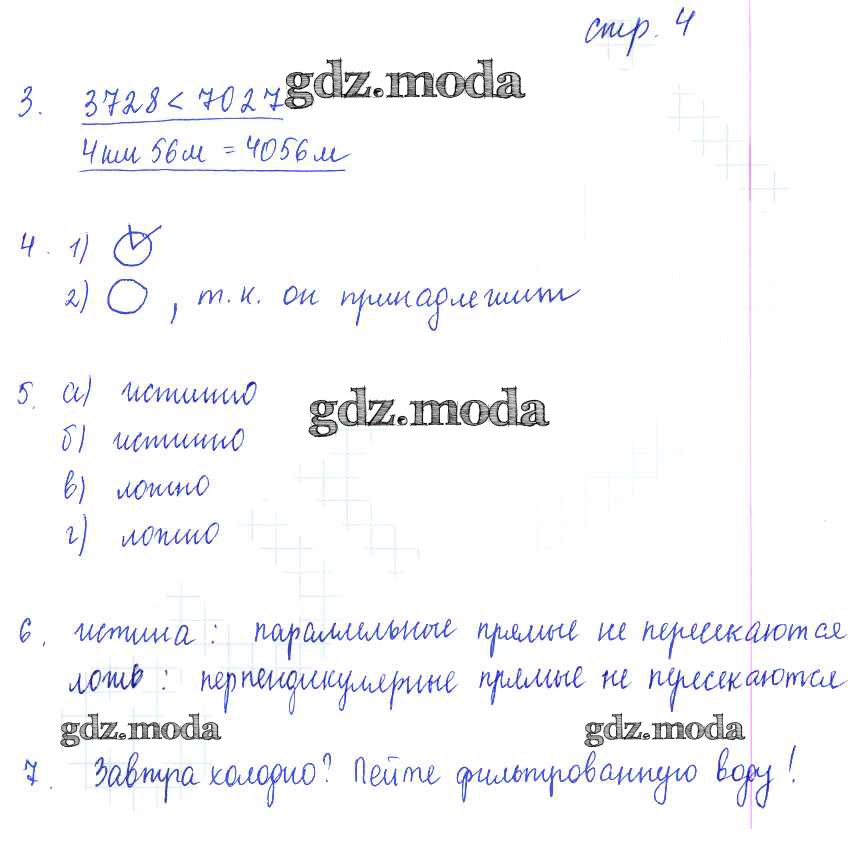 стр. 4
3. 3728 < 7027
gdz.moda
4 км 56 м = 4056 м
4. 1)
2) , т.к. он принадлежит
5. а) истинно
gdz.moda
б) истинно
в) ложно
г) ложно
6. истина: параллельные прямые не пересекаются
ложь: перпендикулярные прямые не пересекаются
gdz.moda gdz.moda
7. Завтра холодно? Пейте фильтрованную воду!